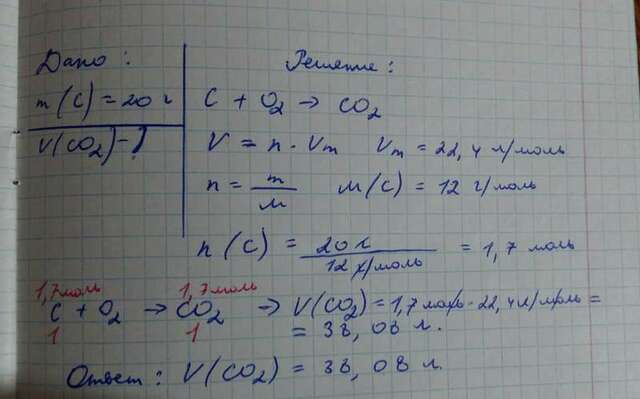 Дано :
m (C) = 20 г
V(CO2) - ?
Решение :
C + O2 → CO2
V = n · Vm Vm = 22,4 л/моль
n = m/M M(C) = 12 г/моль
n (C) = 20 г / 12 г/моль = 1,7 моль
1,7 моль 1,7 моль
C + O2 → CO2 → V(CO2) = 1,7 моль · 22,4 л/моль =
1 1 = 38,08 л.
Ответ : V(CO2) = 38,08 л.